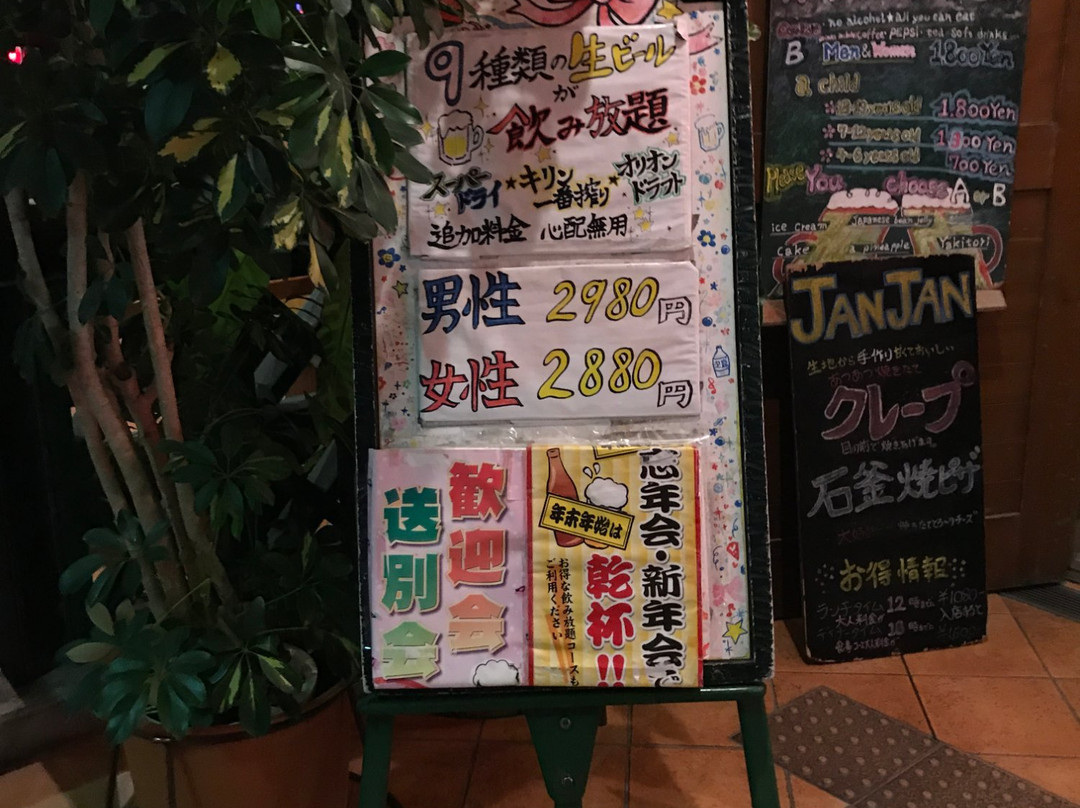 9種類の生ビール
が
飲み放題
スーパードライ★キリン一番搾り★オリオンドラフト
追加料金 心配無用
男性 2980円
女性 2880円
歓迎会
送別会
忘年会・新年会で
乾杯!!
年末年始は
お得な飲み放題コースも
ご利用ください
no alcohol★all you can eat
B Men & Women 1.800Yen
a child
1.800Yen
7-12years old 1300Yen
4-6 years old 700Yen
Have You choose A or B
ice cream
Japanese bean jelly
cake
pineapple
Yakitori
JANJAN
生地から手作り 甘くておいしい
クレープ
目の前で焼きあげます。
石釜焼ピザ
お得情報
ランチタイム 12時まで
大人料金が
入店で